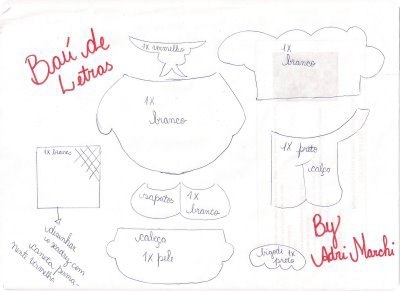 Baú de
Letras
1X vermelho
1X
branco
1X
branco
1X branco
desenhar
o xadrez com
caneta perma-
nente vermelha
sapatos
1X
branco
1X preto
calça
cabeça
1X pele
bigode 1X
preto
By
Adri Marchi